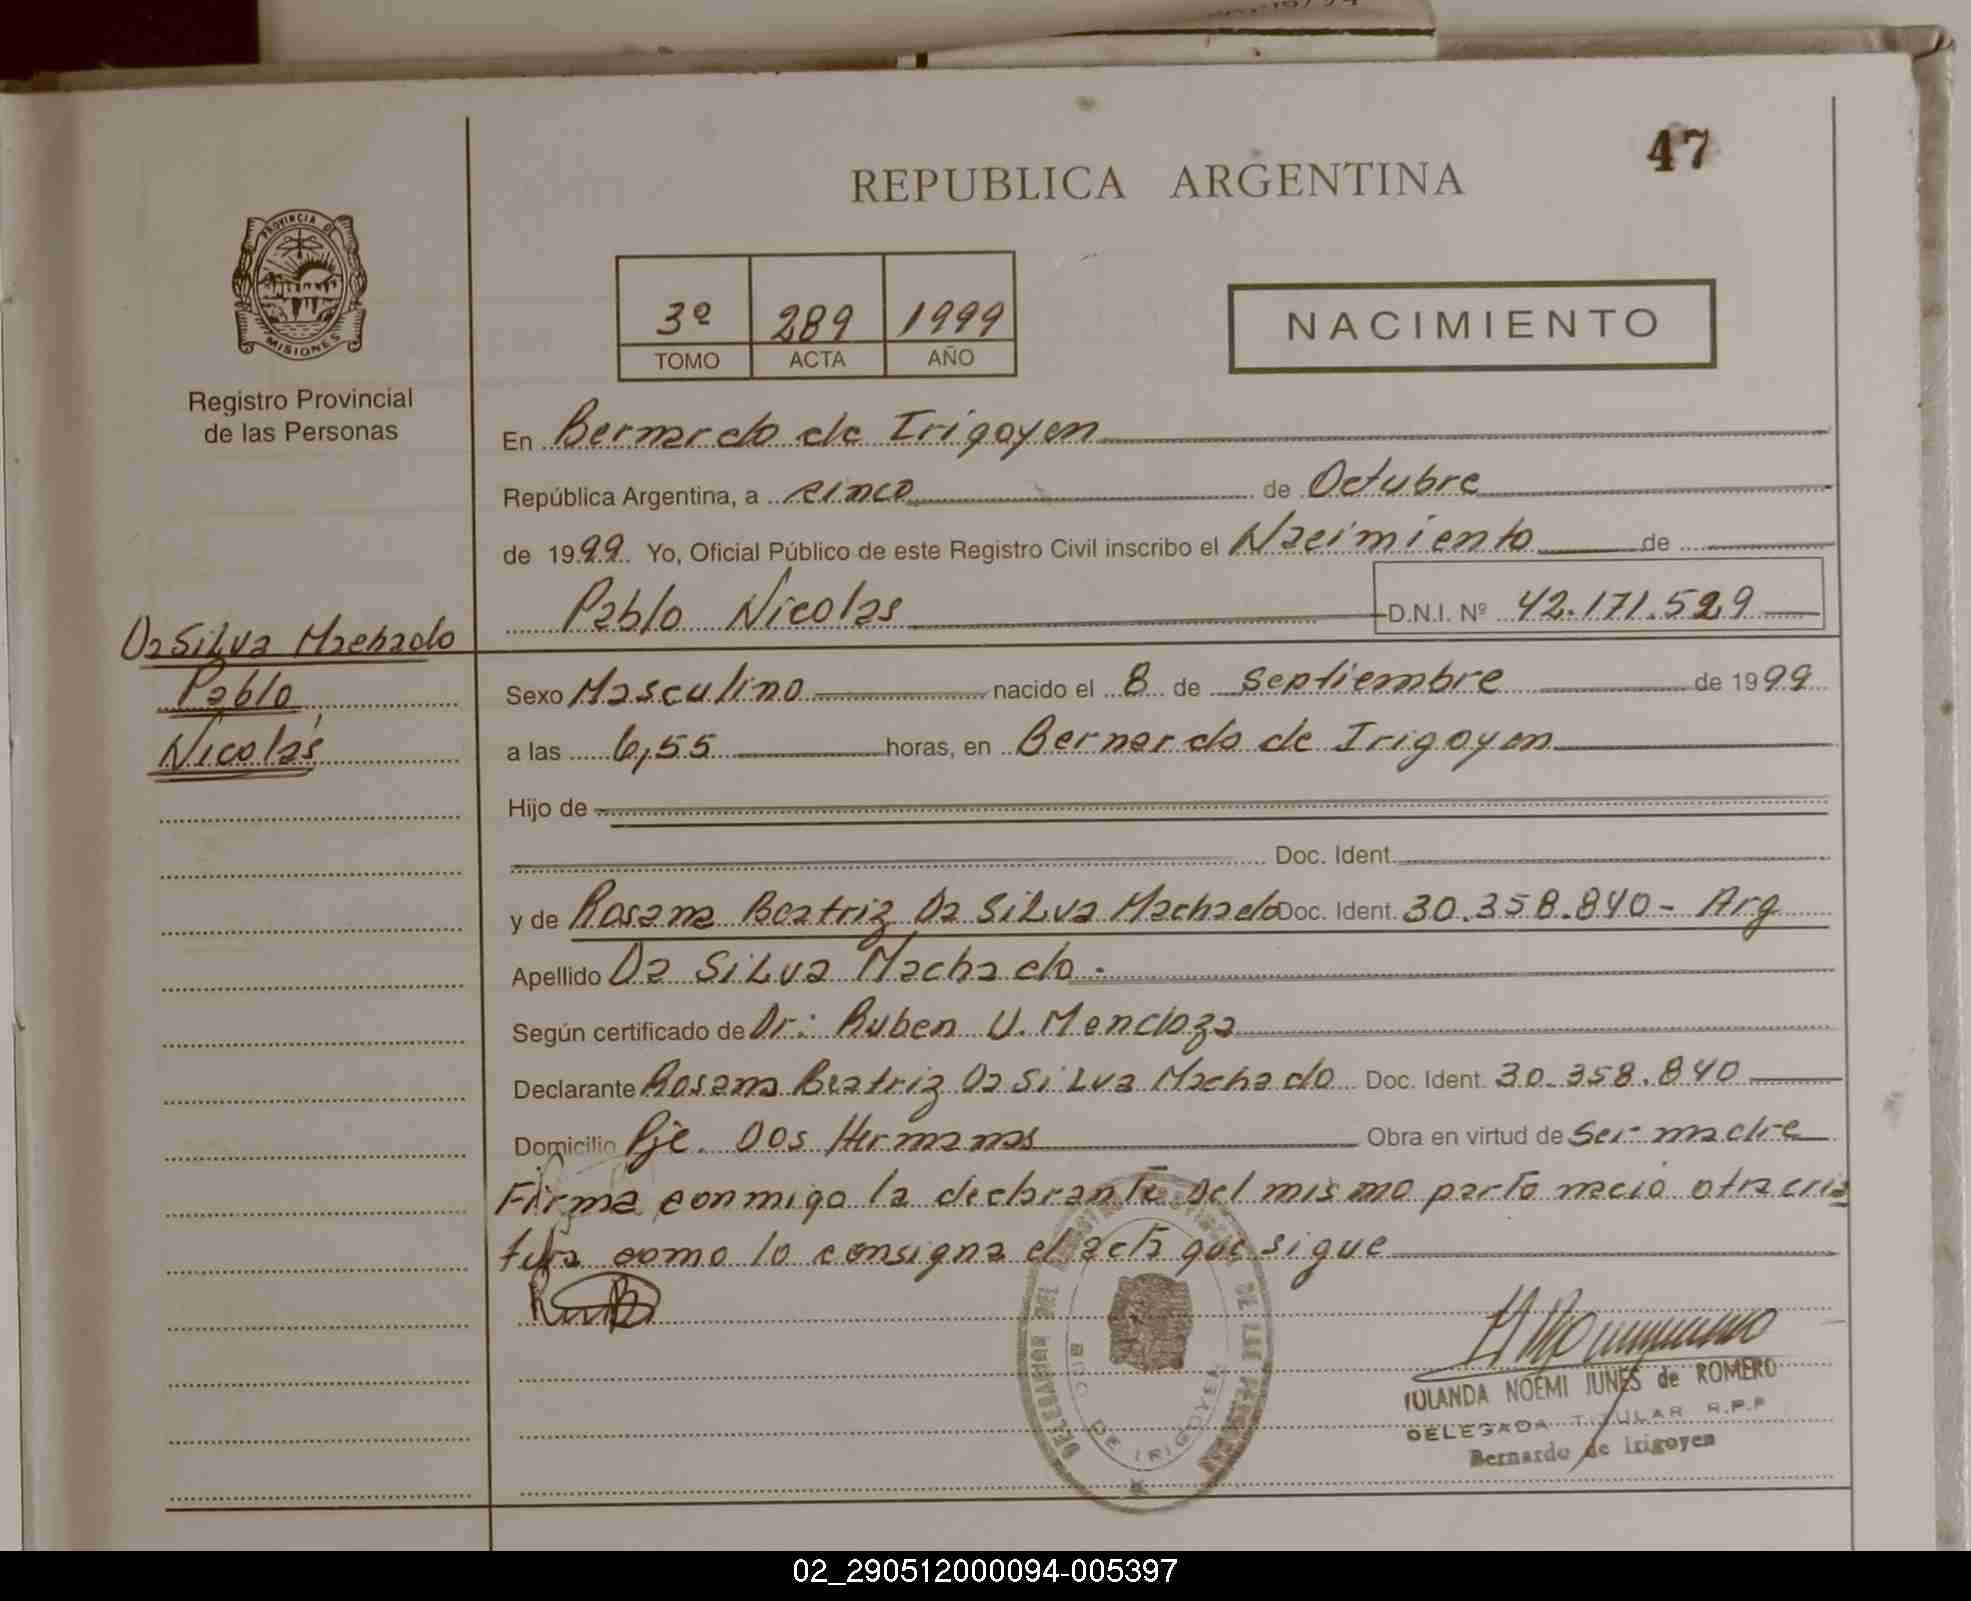 47
REPUBLICA ARGENTINA
PROVINCIA DE
MISIONES
Registro Provincial
de las Personas
3º 289 1999
TOMO ACTA AÑO
NACIMIENTO
En Bernardo de Irigoyen
República Argentina, a cinco de Octubre
de 1999. Yo, Oficial Público de este Registro Civil inscribo el Nacimiento de
Pablo Nicolas D.N.I. Nº 42.171.529
Da SiLva Machado
Pablo
Nicolás
Sexo Masculino nacido el 8 de septiembre de 1999
a las 6,55 horas, en Bernardo de Irigoyen
Hijo de
Doc. Ident.
y de Rosana Beatriz Da SiLva Machado Doc. Ident. 30.358.840 - Arg
Apellido Da SiLva Machado.
Según certificado de Dr: Ruben U. Mendoza
Declarante Rosana Beatriz Da SiLva Machado Doc. Ident. 30.358.840
Domicilio Pje. Dos Hermanas Obra en virtud de ser madre
Firma conmigo la declarante Del mismo parto nació otra cria
tura como lo consigna el acta que sigue
DE IRIGOYEN
IOLANDA NOEMI JUNES de ROMERO
DELEGADA TITULAR R.P.P
Bernardo de Irigoyen
02_290512000094-005397